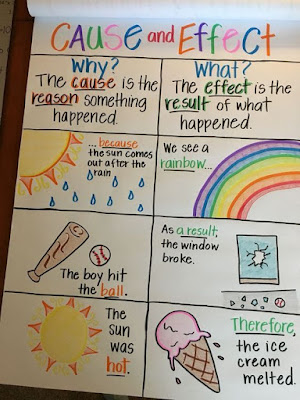 Cause and Effect
Why?
The cause is the
reason something
happened.
What?
The effect is the
result of what
happened.
... because
the sun comes
out after the
rain
We see a
rainbow...
The boy hit
the ball.
As a result,
the window
broke.
The
sun
was
hot.
Therefore,
the ice
cream
melted.